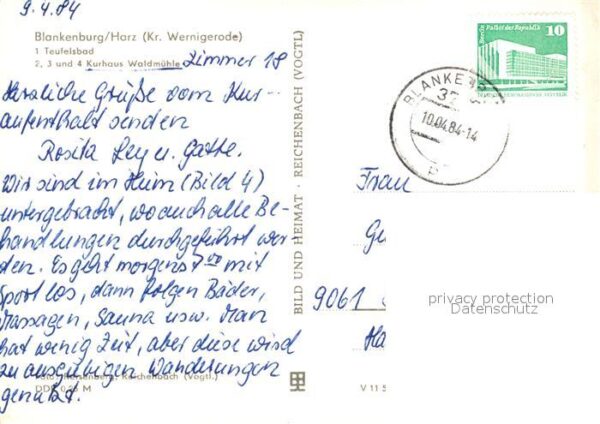 9.4.84
Blankenburg/Harz (Kr. Wernigerode)
1 Teufelsbad
2, 3 und 4 Kurhaus Waldmühle Zimmer 18
Herzliche Grüße vom Kur-
aufenthalt senden
Rosita Ley u. Gatte.
Wir sind im Heim (Bild 4)
untergebracht, wo auch alle Be-
handlungen durchgeführt wer-
den. Es geht morgens 7⁰⁰ mit
Sport los, dann folgen Bäder,
Massagen, Sauna usw. Man
hat wenig Zeit, aber diese wird
zu ausgiebigen Wanderungen
genutzt.
Reichenbach (Vogtl.)
DDR M
BILD UND HEIMAT · REICHENBACH (VOGTL)
V 11 5
Berlin Palast der Republik
10
BLANKENB
37
10.04.84-14
Frau
9061
privacy protection
Datenschutz